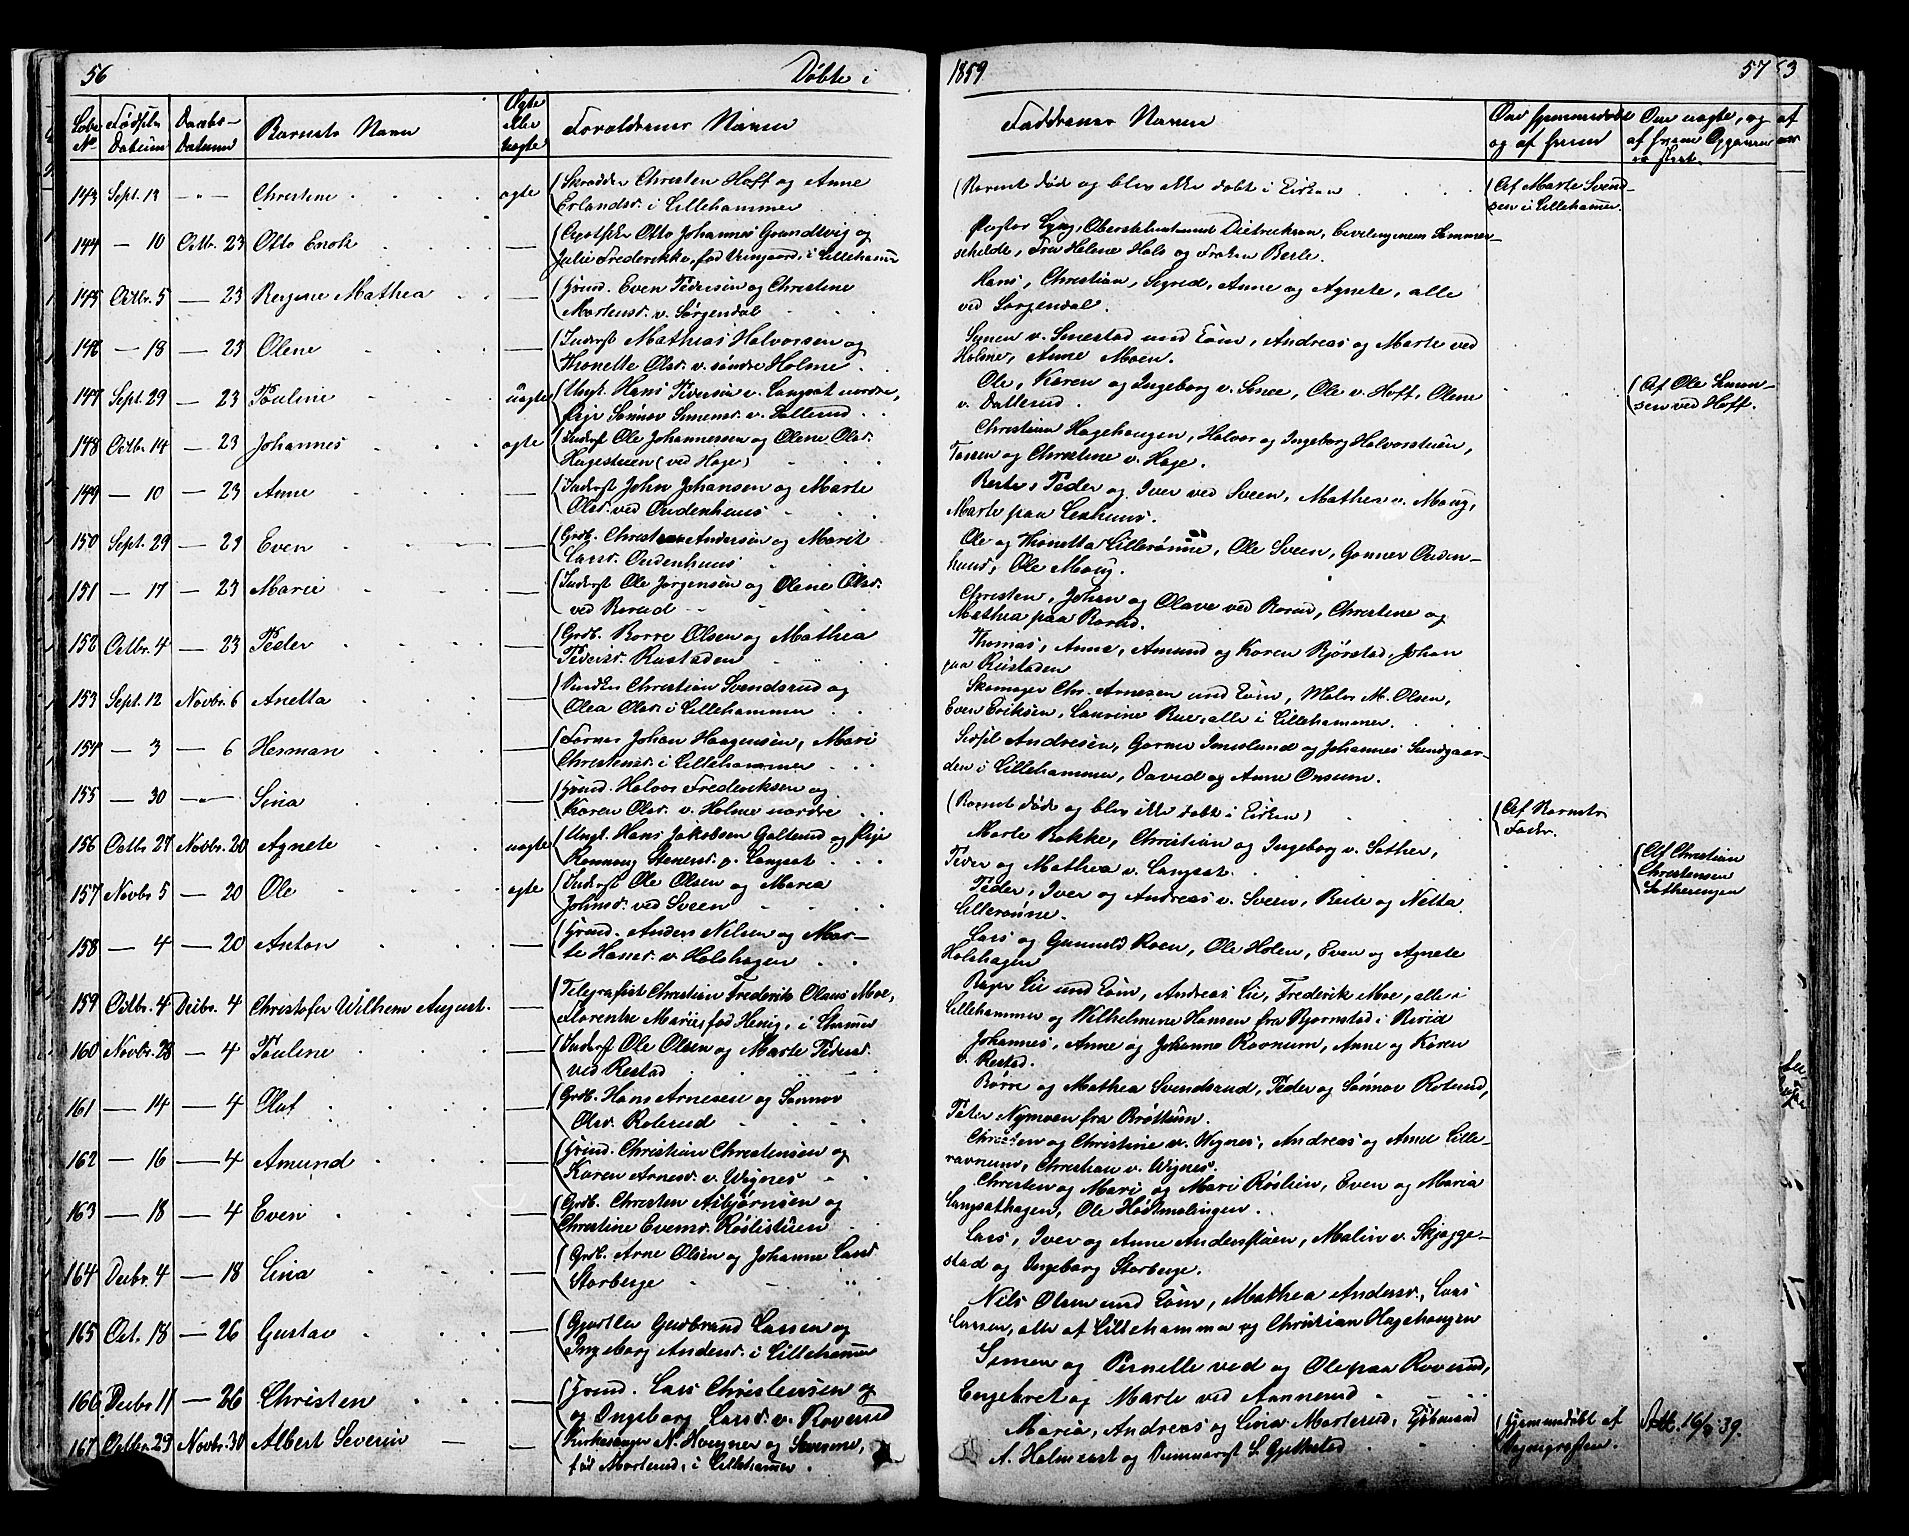 56 Døbte i
1859 57 53
Løbe Fødsels Daabs- Barnets Navn Ægte eller uægte Forældrenes Navne
No Datum Datum
Faddrenes Navne Om hjemmedøbt og af hvem
143 Sept. 13 — " — Christine ægte (Skrædder Christen Hoff og Anne
Erlandsd. i Lillehammer
(Barnet døde og blev ikke døbt i Kirken (Af Marte Svend-
sen i Lillehamer.
144 — 10 Octb. 23 Otto Enok — (Apotheker Otto Johannes Grundtvig og
Julie Frederikke, fød i Lillehamer
Pastor Lyng, Oberstlieutenant Dietrickson, Sommer-
schilde, Fru Helene Hals og Frøken Berle.
145 Octbr. 5 — 23 Regine Mathea — (Huusd. Even Pedersen og Christine
Mortensd. v. Sørgendal
Hans, Christian, Sigrid, Anne og Agnete, alle
ved Sørgendal.
146 — 18 — 23 Olene — (Inderst Mathias Halvorsen og
Thonette Olsd. v. søndre Holme
v. Smestad med Kone, Andreas og Marte ved
Holme, Anne Moen.
147 Sept. 29 — 23 Pauline uægte (Ungk. Hans Pedersen v. Langsæt nordre,
Pige Sønnov Simensd. v. Dallerud
Ole, Karen og Ingeborg v. Ole v. Hoff, Olene
v. Dallerud. (Af Ole Simen-
sen ved Hoff.
148 Octbr. 14 — 23 Johannes ægte (Inderst Ole Johannessen og Olene Olsd.
Hagestuen (ved Hage)
Christian Hagehaugen, Halvor og Ingeborg Halvorstuen,
og Christine v. Hage.
149 — 10 — 23 Anne — (Inderst John Johansen og Marte
Olsd. ved Oudenhuus
Berte, Peder og Iver ved Sveen, Mathea v. Moug,
Marte paa
150 Sept. 29 — 23 Even — (Grdb. Christen Andersen og Marit
Larsd. Oudenhuus
Ole og Thonetta Lillerønne, Ole Sveen, Gunner Ouden-
huus, Ole Moug.
151 — 17 — 23 Marie — (Inderst Ole Jørgensen og Olene Olsd.
ved Rorud
Christen, Johan og Olave ved Rorud, Christine og
Mathea paa Rorud.
152 Octbr. 4 — 23 Peder — (Grdb. Borre Olsen og Mathea
Pedersd. Rustaden
Thomas, Anne, Amund og Karen Bjørstad, Johan
paa Rustaden
153 Sept. 12 Novbr. 6 Anetta — (Snedker Christian Svendsrud og
Olea Olsd. i Lillehammer
Skomager Chr. Arnesen med Kone, Maler M. Olsen,
Even Eriksen, Laurine Bue, alle i Lillehammer.
154 — 3 — 6 Herman — (Garver Johan Haagensen, Mari
Christensd. i Lillehammer
Andresen, Garver og Johannes Sundgaar-
den i Lillehammer, David og Anne Onsum.
155 — 30 — " — Lina — (Huusd. Halvor Frederiksen og
Karen Olsd. v. Holme nordre
(Barnet døde og blev ikke døbt i Kirken) (Af Barnets
Fader.
156 Octbr. 27 Novbr. 20 Agnete uægte (Ungk. Hans Jakobsen Galterud og Pige
Ronnaug Steensd. v. Langsæt
Marte Bakke, Christian og Ingeborg v. Sather,
Peder og Mathea v. Langsæt. (Af Christian
Christensen
Satherengen
157 Novbr. 5 — 20 Ole ægte (Inderst Ole Olsen og Maria
Johnsd. ved Sveen
Peder, Iver og Andreas v. Sveen, Berte og Netta
Lillerønne.
158 — 4 — 20 Anton — (Huusd. Anders Nilsen og Mar-
te Hansd. v. Holshagen
Lars og Gunnild Roen, Ole Holen, Even og Agnete
Holshagen
159 Octbr. 4 Decbr. 4 Christofer Wilhelm August. — (Telegrafist Christian Frederik Olaus Moe,
Florentze Marie fød Henig, i Lhamer
Bager Lie med Kone, Andreas Lie, Frederik Moe, alle i
Lillehammer og Wilhelmine Hansen fra Bjørnstad i Birid
160 Novbr. 28 — 4 Pauline — (Inderst Ole Olsen og Marte Pedersd.
ved Restad
Johannes, Anne og Johanne Rovnum, Anne og Karen
v. Restad.
161 — 14 — 4 Oluf — (Grdb. Hans Arnesen og Sønnov
Olsd. Rolerud
Børre og Mathea Svendsrud, Peder og Sønnov Rolerud,
Peter Nymoen fra Brøttum.
162 — 16 — 4 Amund — (Huusd. Christian Christensen og
Karen Arnesd. v. Wignes
Christen og Christine v. Wignes, Andreas og Anne Lille-
ravnum, Christian v. Wignes.
163 — 18 — 4 Even — (Grdb. Christen Asbjørnsen og
Christine Evensd. Røslistuen
Christen og Mari og Mari Røslien, Even og Maria
Langsæthagen, Ole
164 Decbr. 4 — 18 Lina — (Grdb. Arne Olsen og Johanne Larsd.
Storberge
Lars, Iver og Anne Malin v. Skjægge-
stad og Ingeborg Storberge.
165 Oct. 18 — 26 Gustav — (Gjørtler Gudbrand Larsen og
Ingeborg Andersd. i Lillehamer
Nils Olsen med Kone, Mathea Andersd., Lars
Larsen, alle af Lillehammer og Christian Hagehaugen
166 Decbr. 11 — 26 Christen — (Huusd. Lars Christensen og
og Ingeborg Larsd. v. Roverud
Simen og Pernelle ved og Ole paa Roverud,
Engebret og Marte ved Aannerud
167 Octbr. 29 Novbr. 30 Albert Severin — (Kirkesanger N. Huegner og Severine,
fød Morterud, i Lillehamer.
Maria, Andreas og Lina Morterud,
A. Holmquist og L. Gjettestad (Hjemmedøbt af
Att. 16/8 39.